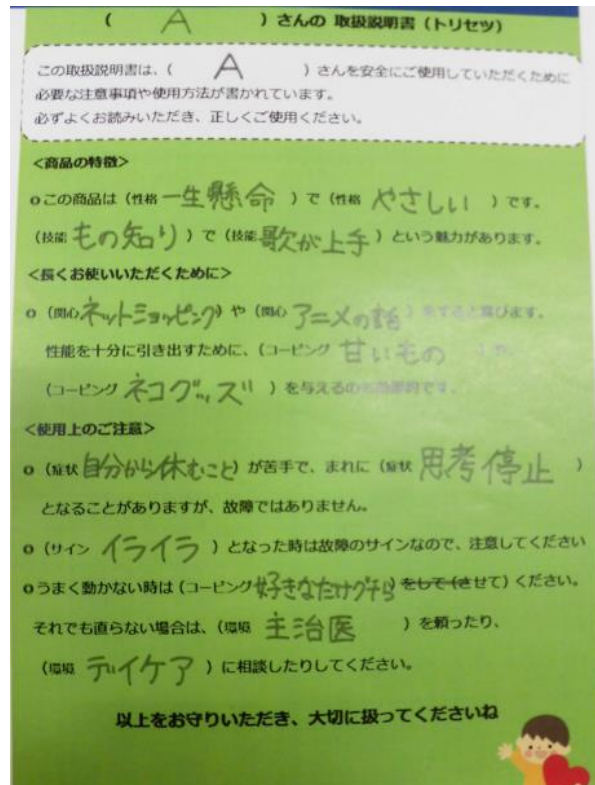 ( A )さんの 取扱説明書(トリセツ)
この取扱説明書は、( A )さんを安全にご使用していただくために
必要な注意事項や使用方法が書かれています。
必ずよくお読みいただき、正しくご使用ください。
<商品の特徴>
oこの商品は(性格 一生懸命 )で(性格 やさしい )です。
(技能 もの知り )で(技能 歌が上手 )という魅力があります。
<長くお使いいただくために>
o(関心 ネットショッピング)や(関心 アニメの話 )をすると喜びます。
性能を十分に引き出すために、(コーピング 甘いもの
(コーピング ネコグッズ )を与えるのも効果的です。
<使用上のご注意>
o(症状 自分から休むこと)が苦手で、まれに(症状 思考停止 )
となることがありますが、故障ではありません。
o(サイン イライラ )となった時は故障のサインなので、注意してください
oうまく動かない時は(コーピング 好きなだけグチら)をして(させて)ください。
それでも直らない場合は、(環境 主治医 )を頼ったり、
(環境 デイケア )に相談したりしてください。
以上をお守りいただき、大切に扱ってくださいね